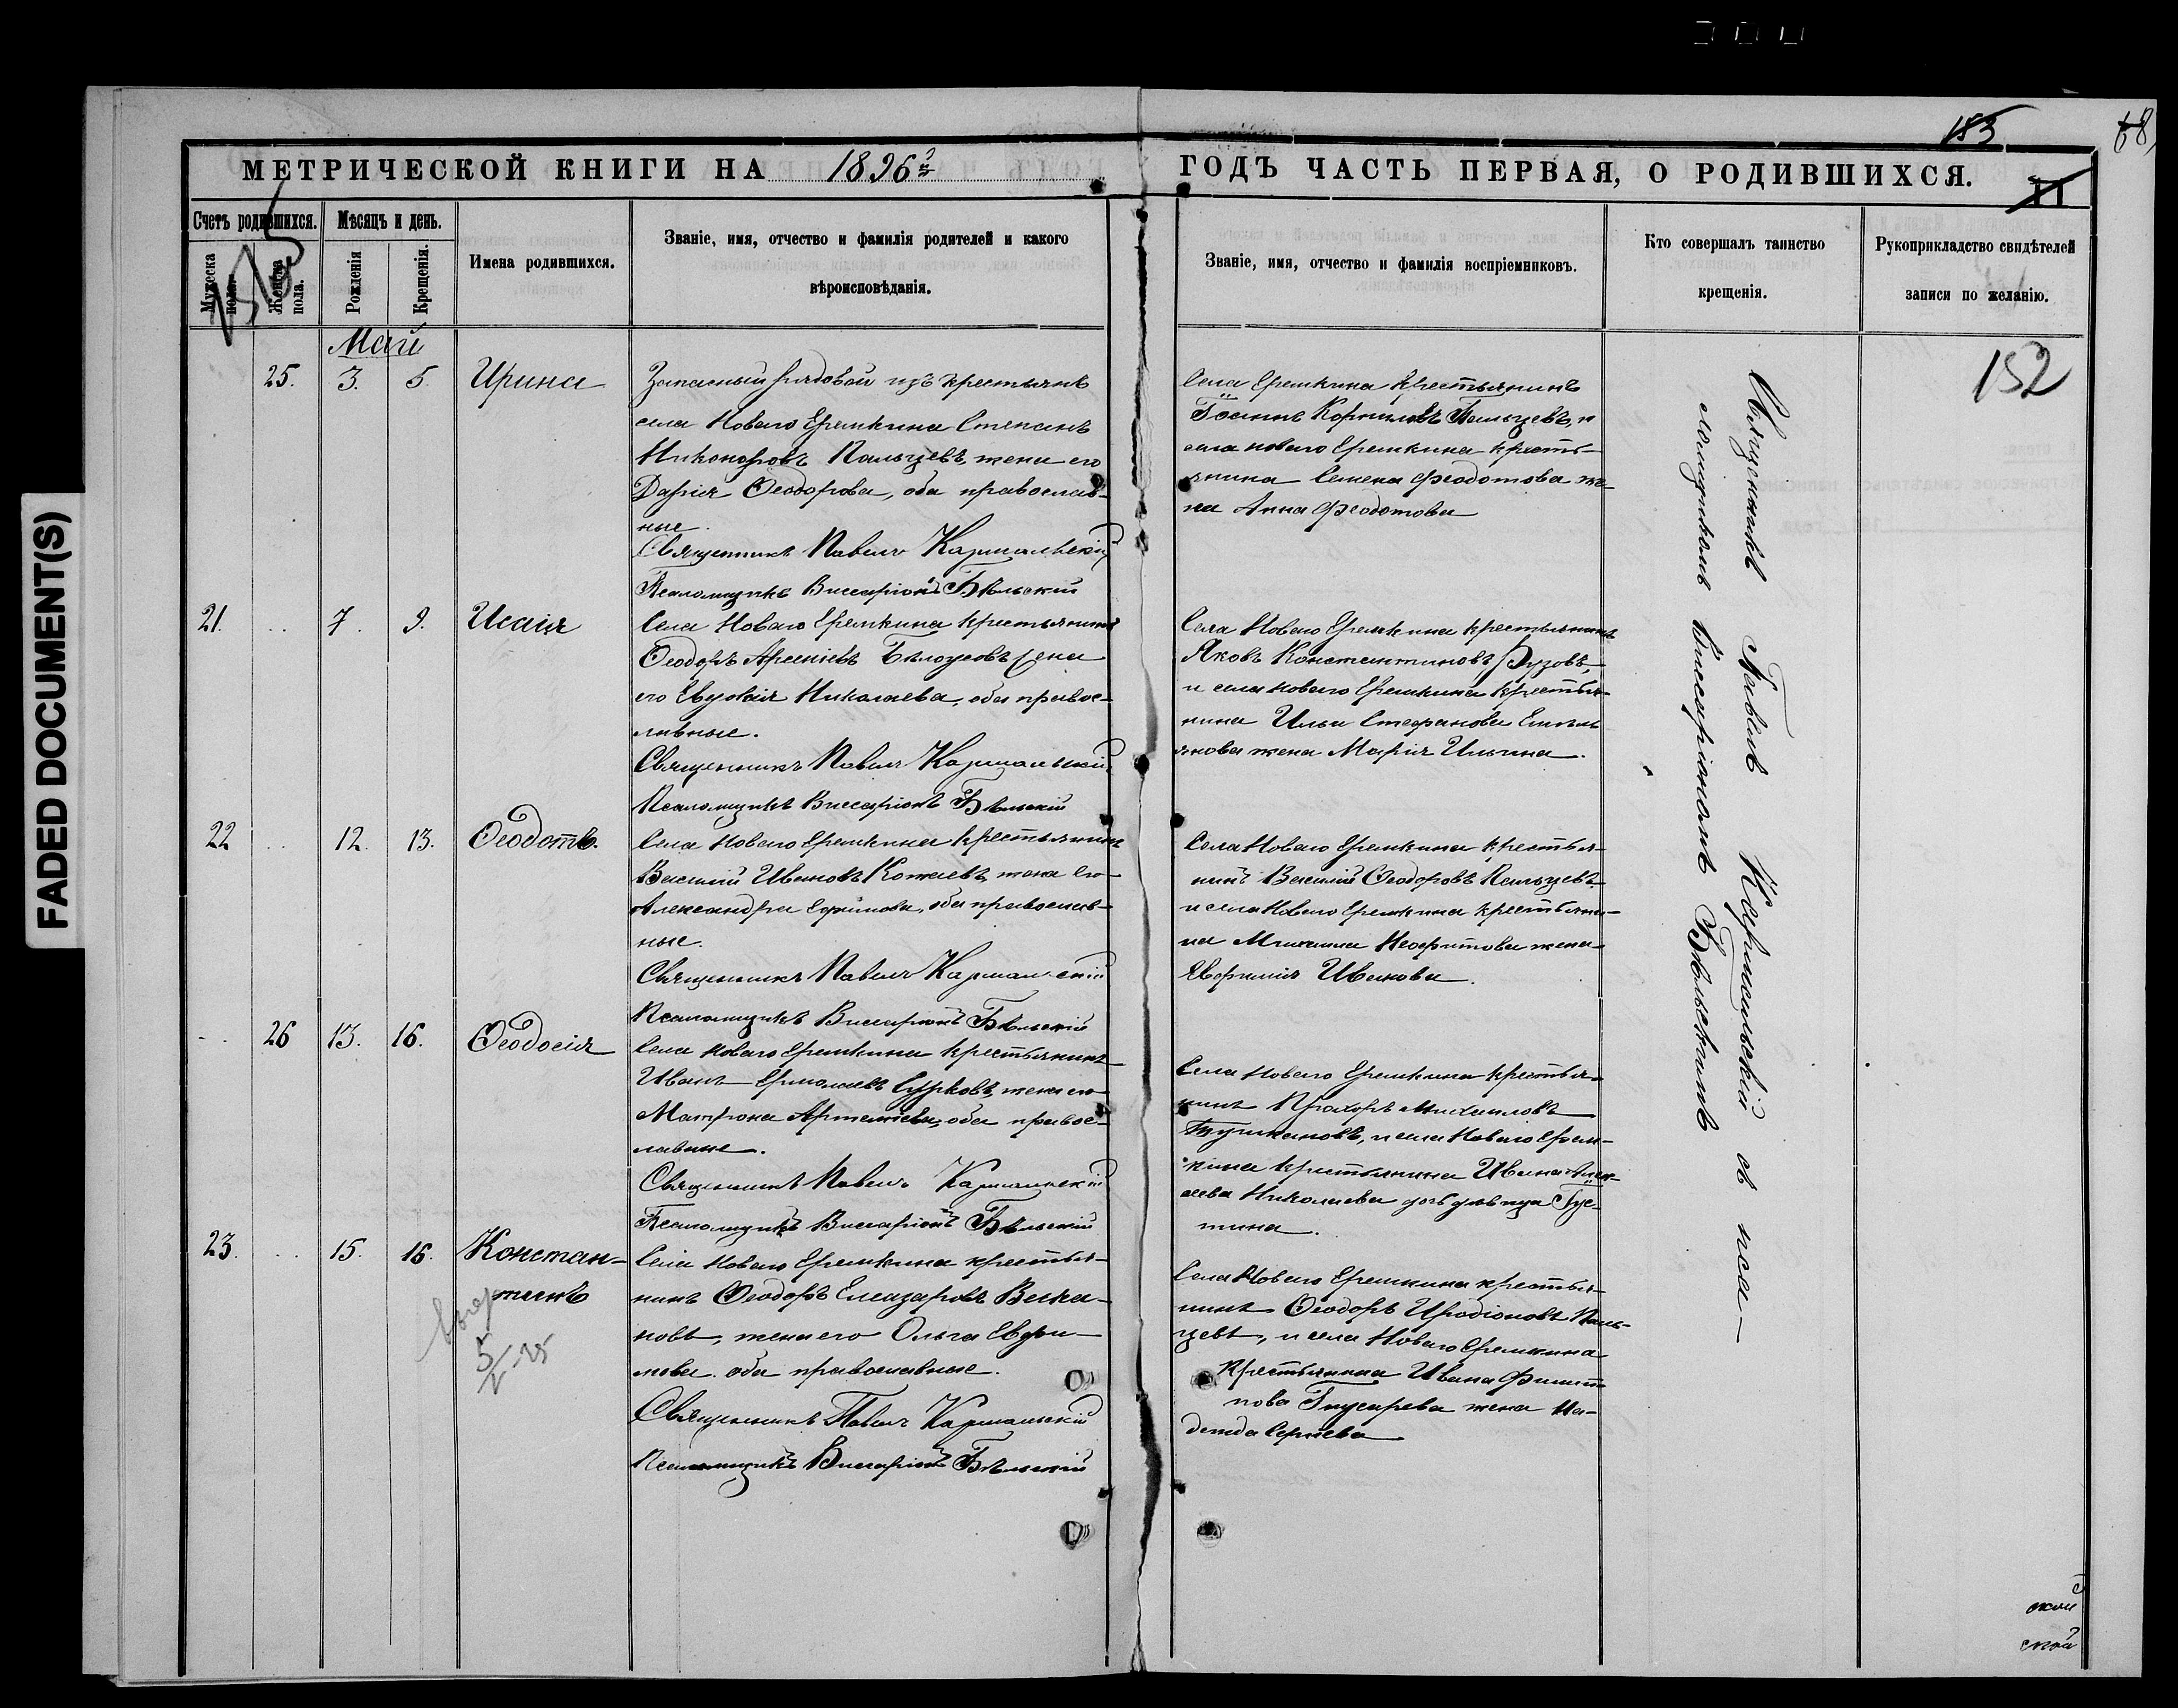 FADED DOCUMENT(S)
185
68
МЕТРИЧЕСКОЙ КНИГИ НА 1896й
ГОДЪ ЧАСТЬ ПЕРВАЯ, О РОДИВШИХСЯ.
11
Счетъ родившихся.
Мѣсяцъ и день.
Имена родившихся.
Званіе, имя, отчество и фамилія родителей и какого
вѣроисповѣданія.
Мужеска пола.
Женска пола.
Рожденія
Крещенія.
Званіе, имя, отчество и фамилія воспріемниковъ.
Кто совершалъ таинство
крещенія.
Рукоприкладство свидѣтелей
записи по желанію.
Май
152
25. 3. 5. Ирина
Запасный рядовой изъ крестьянъ
села Новаго Еремкина Степанъ
Никоноровъ Пальцевъ, жена его
Дарія Ѳеодорова, оба православ-
ные.
Священникъ Павелъ Кармальскій
Псаломщикъ Виссаріонъ Бѣльскій
Села Еремкина крестьянинъ
Іоаннъ Корниловъ Пальцевъ, и
села новаго Еремкина кресть-
янина Семена Феодотова же-
на Анна Феодотова
21. .. 7. 9. Исаія
Села Новаго Еремкина крестьянинъ
Ѳеодоръ Арсеніевъ Бѣлоусовъ, жена
его Евдокія Николаева, оба правос-
лавные.
Священникъ Павелъ Кармальскій
Псаломщикъ Виссаріонъ Бѣльскій
Села Новаго Еремкина крестьянинъ
Яковъ Константиновъ Бузовъ,
и села новаго Еремкина крестья-
нина Ильи Стефанова Емель
янова жена Марія Ильина.
22 .. 12. 13. Ѳеодотъ.
Села Новаго Еремкина крестьянинъ
Василій Ивановъ Котаевъ, жена его
Александра Ефимова, оба православ-
ные.
Священникъ Павелъ Кармальскій
Псаломщикъ Виссаріонъ Бѣльскій
Села Новаго Еремкина крестья-
нинъ Василій Ѳеодоровъ Пальцевъ
и села Новаго Еремкина крестьяни-
на Михаила Неофитова жена
Евфимія Иванова.
.. 26 13. 16. Ѳеодосія
Села Новаго Еремкина крестьянинъ
Иванъ Ермолаевъ Сурковъ, жена его
Матрона Артеміева, оба правос-
лавные.
Священникъ Павелъ Кармальскій
Псаломщикъ Виссаріонъ Бѣльскій
Села Новаго Еремкина крестья-
нинъ Прохоръ Михаиловъ
Тушкановъ, и села Новаго Ерем-
кина крестьянина Ивана Алек-
сеева Николаева дочь дѣвица Іус-
тина.
23. .. 15. 16. Констан-
тинъ
5/V-25
Села Новаго Еремкина крестья-
нинъ Ѳеодоръ Елеазаровъ Века-
новъ, жена его Ольга Евфи-
мова оба православные.
Священникъ Павелъ Кармальскій
Псаломщикъ Виссаріонъ Бѣльскій
Села Новаго Еремкина крестья-
нинъ Ѳеодоръ Иродіоновъ Паль-
цевъ, и села Новаго Еремкина
крестьянина Ивана Филип
пова жена На-
дежда Сергіева
Священникъ Павелъ Кармальскій съ пса-
ломщикомъ Виссаріономъ Бѣльскимъ
ской